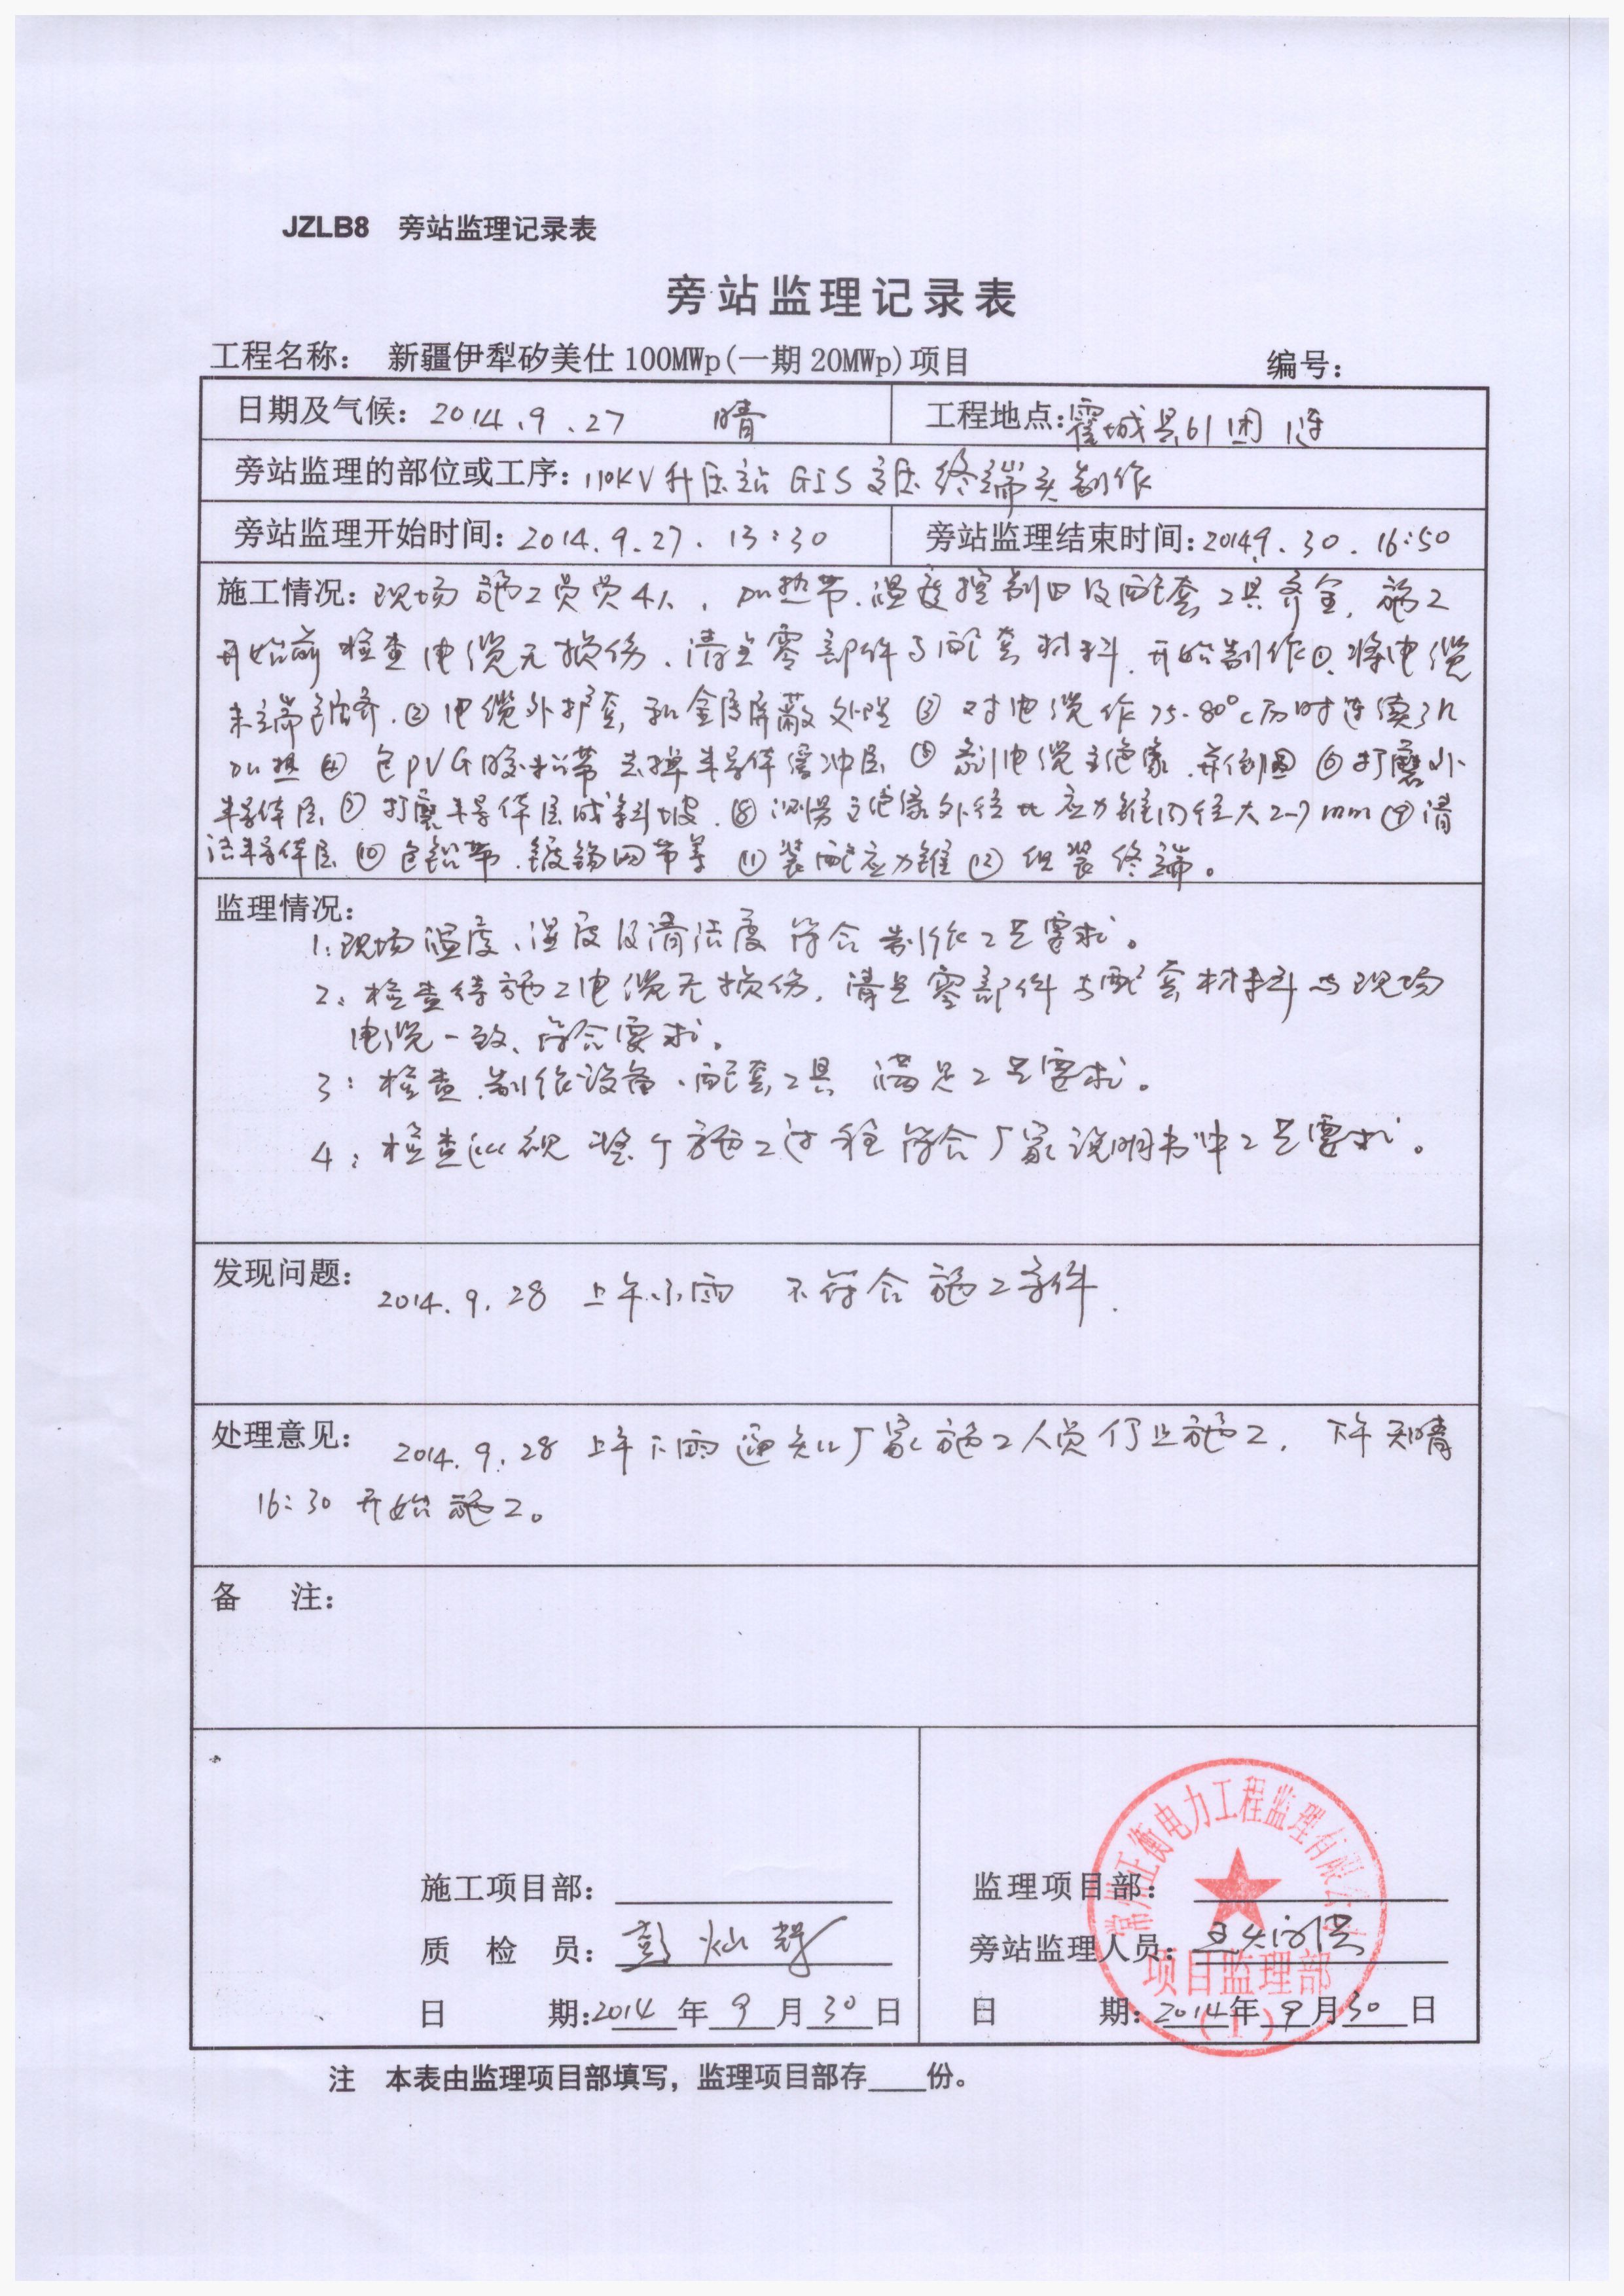 JZLB8 旁站监理记录表
旁站监理记录表
工程名称： 新疆伊犁矽美仕100MWp(一期20MWp)项目 编号：
日期及气候：2014.9.27 晴 工程地点：霍城县61团1连
旁站监理的部位或工序：110KV升压站GIS高压终端头制作
旁站监理开始时间：2014.9.27. 13:30 旁站监理结束时间：2014.9.30.16:50
施工情况：现场施工人员4人，加热带、温度控制 及配套工具齐全，施工
开始前检查电缆无损伤、清点零部件与配套材料，开始制作①、将电缆
末端锯齐.②电缆外护套和金属屏蔽处理③对电缆作75-80°C 连续3h
加热④包PVG胶 带去掉半导体缓冲层⑤剥电缆主绝缘、并倒圆⑥打磨外
半导体层⑦打磨半导体层成斜坡.⑧测量主绝缘外径比应力锥内径大2-7mm⑨清
洁半导体层⑩包铅带.镀锡网带等⑪装配应力锥⑫组装终端。
监理情况：
1:现场温度、湿度及清洁度符合制作工艺要求。
2:检查待施工电缆无损伤，清点零部件与配套材料与现场
电缆一致、符合要求。
3:检查制作设备、配套工具满足工艺要求。
4:检查巡视整个施工过程符合厂家说明书中工艺要求。
发现问题：
2014.9.28 上午小雨 不符合施工条件.
处理意见：
2014.9.28 上午下雨通知厂家施工人员停止施工，下午天晴
16:30开始施工。
备 注：
施工项目部： 监理项目部：
质 检 员：彭灿辉 旁站监理人员：
日 期：2014年9月30日 日 期：2014年9月30日
常州正衡电力工程监理有限公司
项目监理部
(1)
注 本表由监理项目部填写，监理项目部存 份。